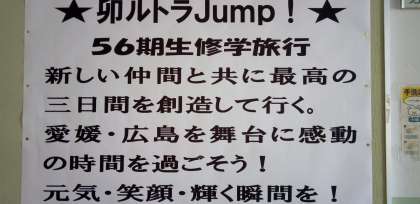 ★卯ルトラJump！★
56期生修学旅行
新しい仲間と共に最高の
三日間を創造して行く。
愛媛・広島を舞台に感動
の時間を過ごそう！
元気・笑顔・輝く瞬間を！